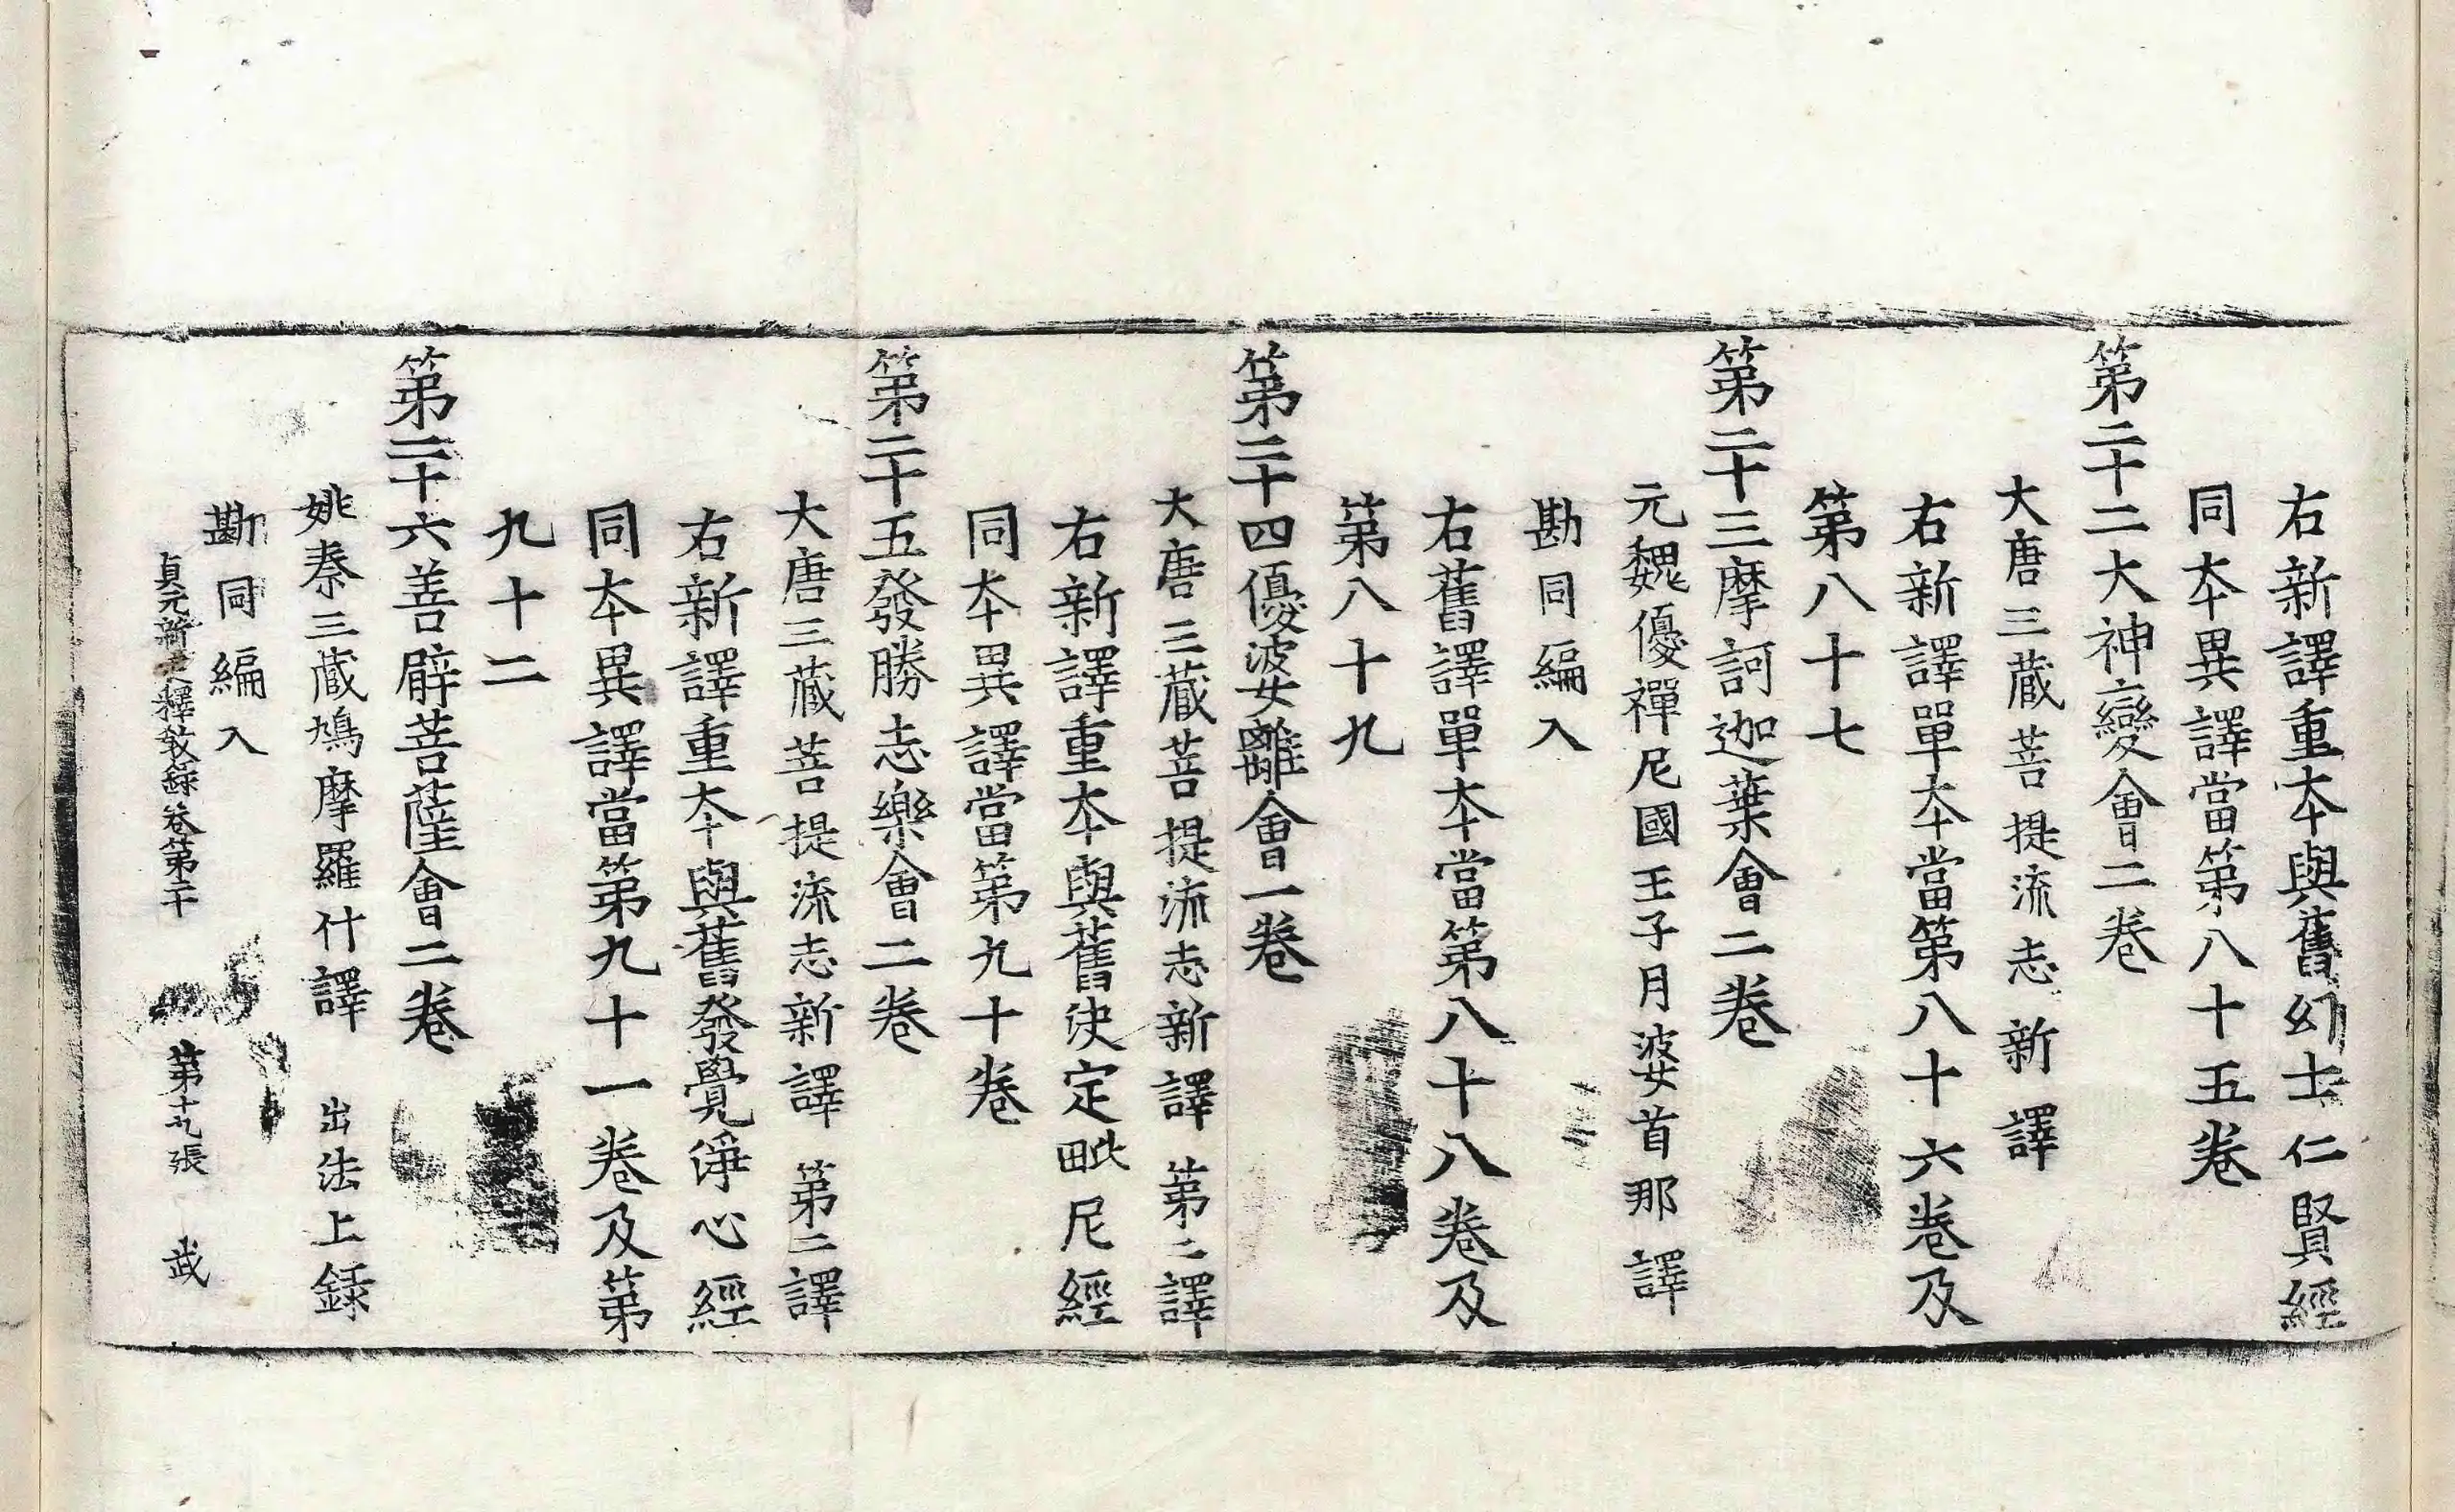 右新譯重夲與舊幻士仁賢經
同夲異譯當第八十五卷
第二十二大神變會二卷
大唐三藏菩提流志新譯
右新譯單夲當第八十六卷及
第八十七
第二十三摩訶迦葉會二卷
元魏優禪尼國王子月婆首那譯
勘同編入
右舊譯單夲當第八十八卷及
第八十九
第二十四優波離會一卷
大唐三藏菩提流志新譯 第二譯
右新譯重夲與舊决定毗尼經
同夲異譯當第九十卷
第二十五發勝志樂會二卷
大唐三藏菩提流志新譯 第二譯
右新譯重夲與舊發覺淨心經
同夲異譯當第九十一卷及第
九十二
第二十六善臂菩薩會二卷
姚秦三藏鳩摩羅什譯 出法上録
勘同編入
貞元新定釋教錄卷第二十 第十九張 武